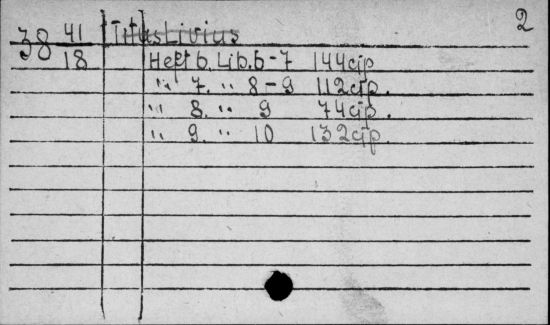 2
38 41/18 Titus Livius
Heft 6. Lib. 6-7 144 стр
" 7. " 8-9 112 стр.
" 8. " 9 74 стр.
" 9. " 10 132 стр.